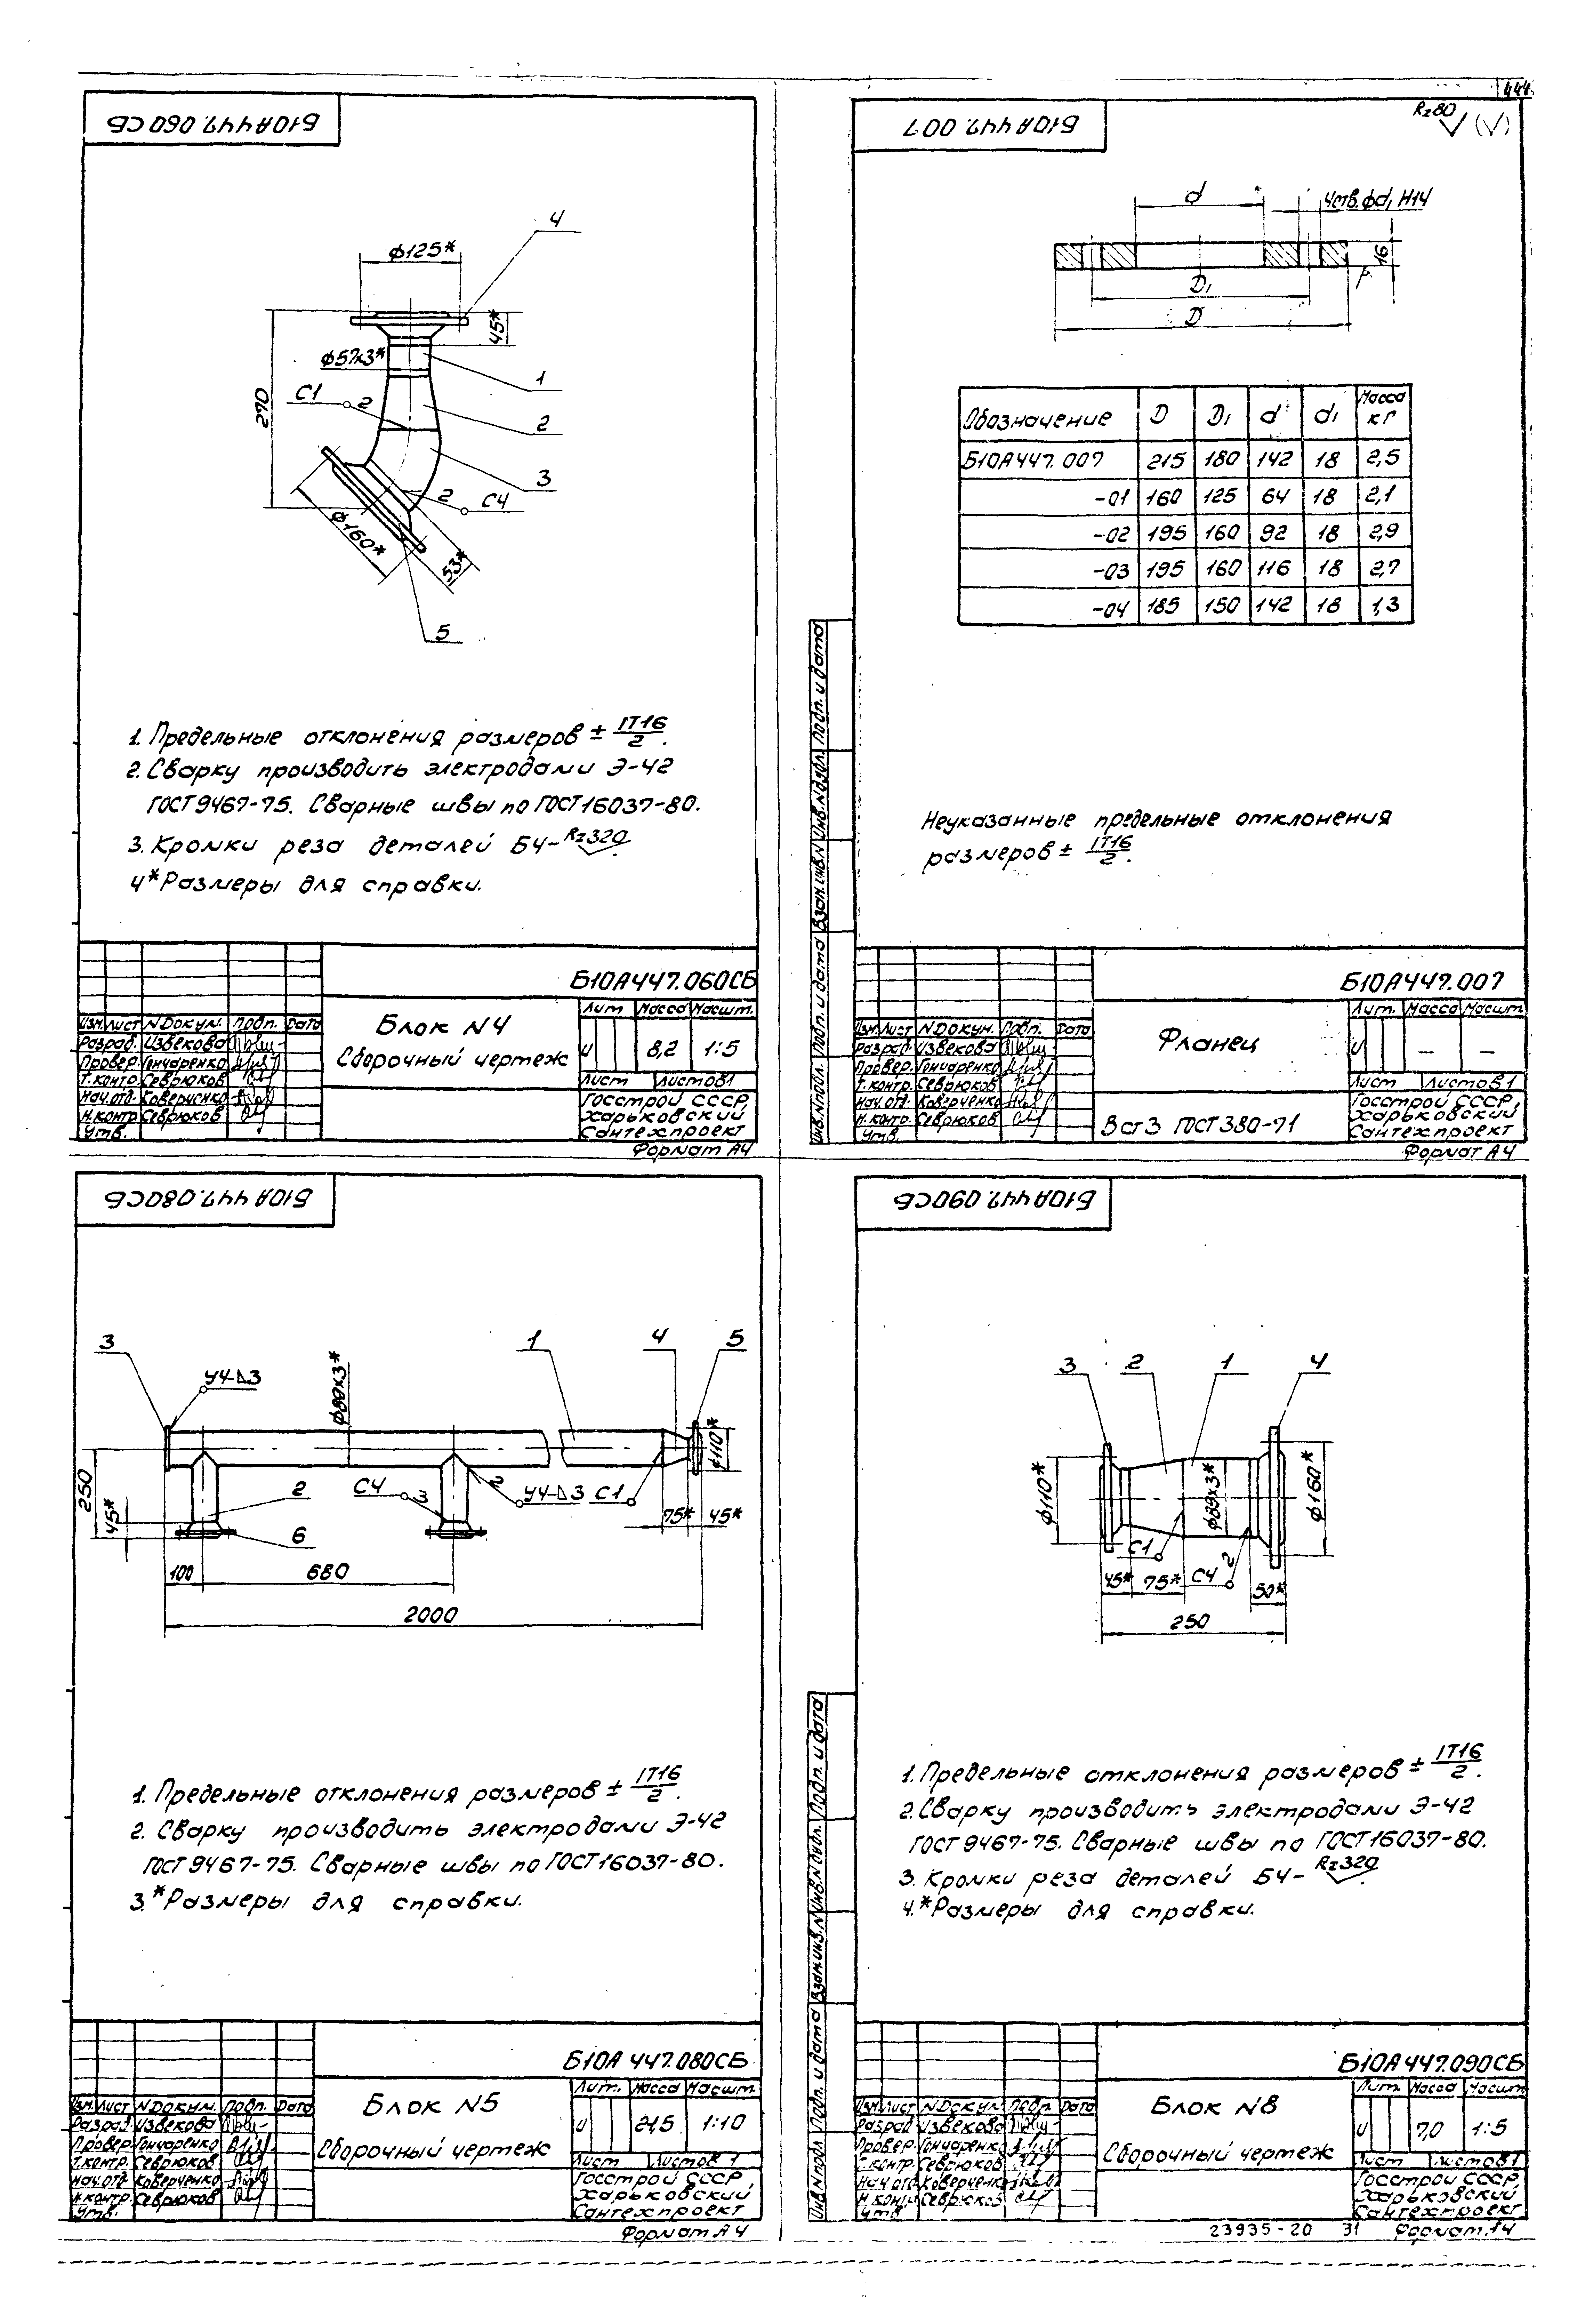 444
Б10А447.060 СБ
4
ф125*
45*
ф57х3*
1
С1
2
270
2
3
2
С4
ф160*
53*
5
1. Предельные отклонения размеров ± IT16/2.
2. Сварку производить электродами Э-42
ГОСТ 9467-75. Сварные швы по ГОСТ 16037-80.
3. Кромки реза деталей БЧ- Rz320
4* Размеры для справки.
Б10А447.060СБ
Изм. Лист N Докум. Подп. Дата
Разраб. Извекова
Провер. Гончаренко
Т.контр. Севрюков
Нач.отд. Коверченко
Н.контр Севрюков
Утв.
Блок N4
Сборочный чертеж
Лит. Масса Масшт.
И 8,2 1:5
Лист Листов 1
Госстрой СССР,
Харьковский
Сантехпроект
Формат А4
Б10А447.007
Rz80 (√)
d
4отв. фd1 H14
16
D1
D
Обозначение D D1 d d1 Масса кг
Б10А447.007 215 180 142 18 2,5
-01 160 125 64 18 2,1
-02 195 160 92 18 2,9
-03 195 160 116 18 2,7
-04 185 150 142 18 1,3
Неуказанные предельные отклонения
размеров ± IT16/2.
Инв.N подл. Подп. и дата Взам.инв.N Инв.N дубл. Подп. и дата
Б10А447.007
Изм. Лист N Докум. Подп. Дата
Разраб. Извекова
Провер. Гончаренко
Т.контр. Севрюков
Нач.отд. Коверченко
Н.контр. Севрюков
Утв.
Фланец
Лит. Масса Масшт.
И — —
Лист Листов 1
В ст3 ГОСТ 380-71
Госстрой СССР,
Харьковский
Сантехпроект
Формат А4
Б10А447.080СБ
3
У4-⊿3
ф89х3*
1
4
5
ф110*
250
45*
2
6
С4
3
2
У4-⊿3
С1
75*
45*
100
680
2000
1. Предельные отклонения размеров ± IT16/2.
2. Сварку производить электродами Э-42
ГОСТ 9467-75. Сварные швы по ГОСТ 16037-80.
3.* Размеры для справки.
Б10А 447.080СБ
Изм. Лист N Докум. Подп. Дата
Разраб. Извекова
Провер. Гончаренко
Т.контр. Севрюков
Нач.отд. Коверченко
Н.контр. Севрюков
Утв.
Блок N5
Сборочный чертеж
Лит. Масса Масшт.
И 21,5 1:10
Лист Листов 1
Госстрой СССР,
Харьковский
Сантехпроект
Формат А4
Б10А447.090СБ
3
2
1
4
ф110*
ф89х3*
ф160*
С1
С4
2
45*
75*
50*
250
1. Предельные отклонения размеров ± IT16/2.
2. Сварку производить электродами Э-42
ГОСТ 9467-75. Сварные швы по ГОСТ 16037-80.
3. Кромки реза деталей БЧ- Rz320
4.* Размеры для справки.
Инв.N подл. Подп. и дата Взам.инв.N Инв.N дубл. Подп. и дата
Б10А447.090СБ
Изм. Лист N Докум. Подп. Дата
Разраб. Извекова
Провер. Гончаренко
Т.контр. Севрюков
Нач.отд. Коверченко
Н.контр. Севрюков
Утв.
Блок N8
Сборочный чертеж
Лит. Масса Масшт.
И 7,0 1:5
Лист Листов 1
Госстрой СССР,
Харьковский
Сантехпроект
23935-20 31 Формат А4